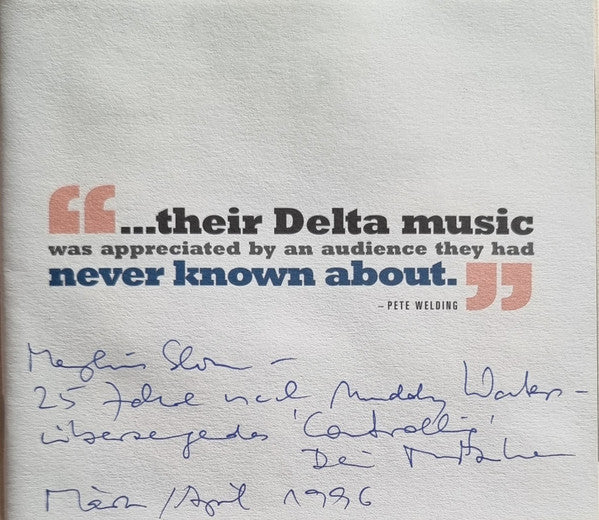 “...their Delta music
was appreciated by an audience they had
never known about.”
– PETE WELDING
25 Jahre nach Muddy Waters –
überzeugendes 'Controlling'
Dein
März/April 1996